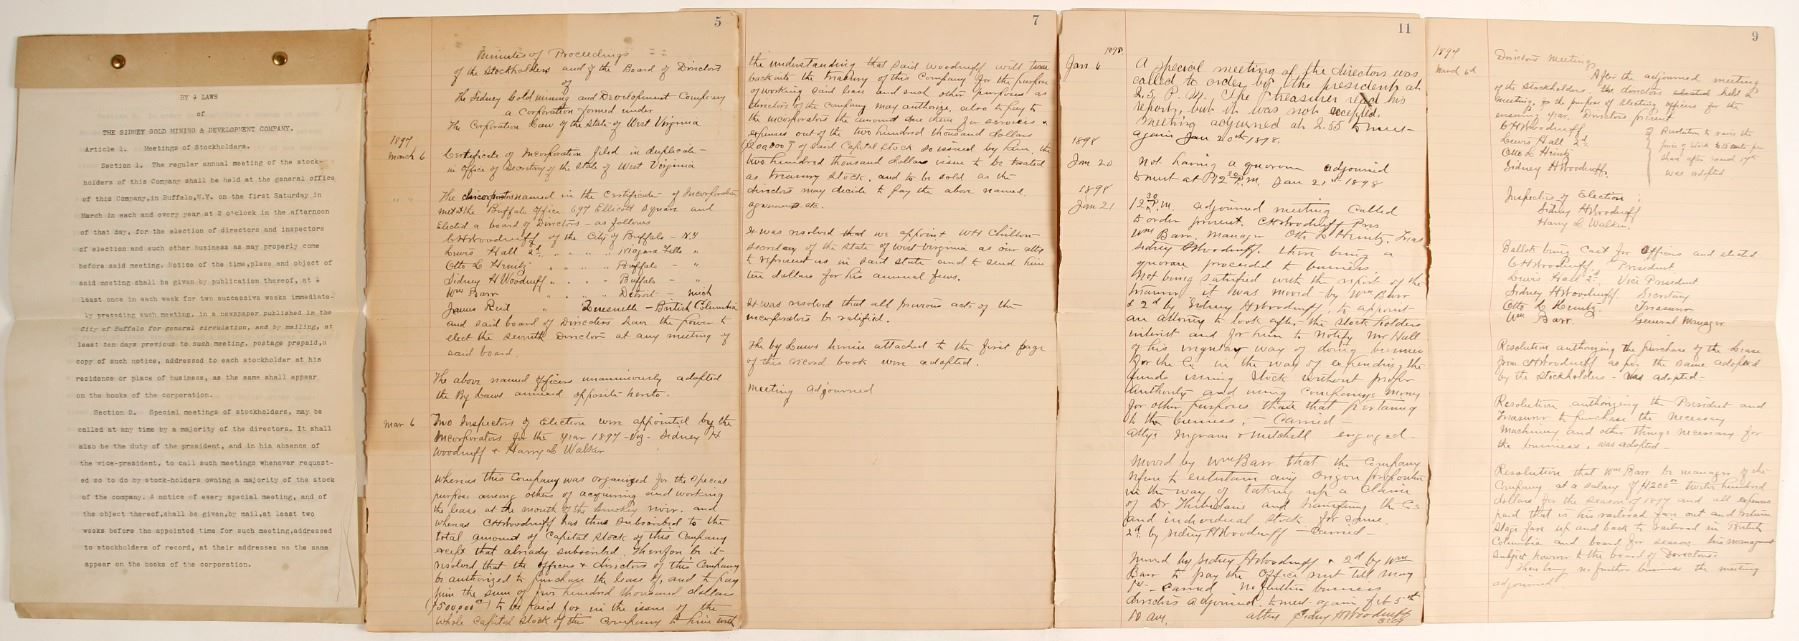 BY & LAWS
of
THE SIDNEY GOLD MINING & DEVELOPMENT COMPANY.
Article 1. Meetings of Stockholders.
Section 1. The regular annual meeting of the stock-
holders of this Company shall be held at the general office
of this Company, in Buffalo, N.Y. on the first Saturday in
March in each and every year at 2 o'clock in the afternoon
of that day, for the election of directors and inspectors
of election and such other business as may properly come
before said meeting. Notice of the time, place and object of
said meeting shall be given by publication thereof, at
least once in each week for two successive weeks immediate-
ly preceding such meeting, in a newspaper published in the
city of Buffalo for general circulation, and by mailing, at
least ten days previous to such meeting, postage prepaid, a
copy of such notice, addressed to each stockholder at his
residence or place of business, as the same shall appear
on the books of the corporation.
Section 2. Special meetings of stockholders, may be
called at any time by a majority of the directors. It shall
also be the duty of the president, and in his absence of
the vice-president, to call such meetings whenever request-
ed so to do by stock-holders owning a majority of the stock
of the company. A notice of every special meeting, and of
the object thereof, shall be given, by mail, at least two
weeks before the appointed time for such meeting, addressed
to stockholders of record, at their addresses as the same
appear on the books of the corporation.
5
Minutes of Proceedings
of the Stockholders and of the Board of Directors
of
The Sidney Gold mining and Development Company
a Corporation formed under
The Corporation Law of the State of West Virginia
1897
March 6 Certificate of Incorporation filed in duplicate -
in Office of Secretary of the State of West Virginia
" " The named in the Certificate of Incorporation
met at the Buffalo Office 697 Ellicott Square and
Elected a board of Directors - as follows
CH Woodruff of the City of Buffalo - N.Y.
Lewis Hall 2d " " " " Niagara Falls "
Otto L Heintz " " " " Buffalo - "
Sidney H Woodruff " " " Buffalo - "
Wm Barr " " " Detroit - Mich
James Reid " Quesnelle - British Columbia
and said board of Directors have the power to
elect the seventh Director at any meeting of
said board.
The above named Officers unanimously adopted
the By Laws annexed opposite hereto.
Mar 6 Two Inspectors of Election were appointed by the
Incorporators for the year 1897 - Viz - Sidney H
Woodruff & Harry L Walker
Whereas this Company was organized for the special
purpose among others of acquiring and working
the lease at the mouth of the river. and
whereas CH Woodruff has thus subscribed to the
total amount of Capital Stock of this Company
except that already subscribed. Therefore be it
resolved that the officers & directors of this Company
be authorized to purchase the lease of, and to pay
him the sum of five hundred thousand dollars
($500,000 00) to be paid for in the issue of the
whole Capital Stock of the Company to him with
7
the understanding that said Woodruff will turn
back into the treasury of this Company for the purpose
of working said lease and such other purposes as
directors of the Company may authorize, also to pay to
the incorporators the amount due them for services &
expenses out of the two hundred thousand dollars
of said Capital Stock so issued by him, the
two hundred thousand dollars issue to be treated
as treasury stock, and to be sold as the
directors may decide to pay the above named.
agements etc.
It was resolved that we appoint WE Chilton
Secretary of the State of West Virginia as our atty
to represent us in said state and to send him
ten dollars for his annual fees.
It was resolved that all previous acts of the
incorporators be ratified.
The by Laws hereto attached to the first page
of this record book were adopted.
Meeting adjourned
11
1898
Jan 6 A special meeting of the directors was
called to order by the president at
2.50 P.M. The treasurer read his
report, but it was not accepted.
Meeting adjourned at 2.55 to meet
again Jan 20th 1898.
1898
Jan 20 Not having a quorum adjourned
to meet at P.M. Jan 21st 1898
1898
Jan 21 12 P.M. adjourned meeting called
to order present. CH Woodruff Pres
Wm Barr, Manager Otto L Heintz, Treas
Sidney H Woodruff. there being a
quorum proceeded to business
Not being satisfied with the report of the
treasurer it was moved by Wm Barr
& 2d by Sidney H Woodruff, to appoint
an attorney to look after the stock holders
interest and for him to Notify Mr Hall
of his irregular way of doing business
for the Co. in the way of expending the
funds issuing stock without proper
authority and using companys money
for other purposes than that pertaining
to the business, Carried -
Attys Ingram & Mitchell engaged.
Moved by Wm Barr that the Company
refuse to entertain any proposition
in the way of taking up a claim
of Dr and transferring the Co's
and individual stock for same.
2d by Sidney H Woodruff - Carried -
Moved by Sidney H Woodruff & 2d by Wm
Barr to pay the Office rent till May
1st - Carried No further business
directors adjourned to meet again Feb 5th
10 am. attest Sidney H Woodruff
Secy
9
1897
March 6th Directors Meeting
After the adjourned meeting
of the Stockholders the directors held a
meeting, for the purpose of electing officers for the
ensuing year. Directors present
CH Woodruff
Lewis Hall 2d
Otto L Heintz
Sidney H Woodruff.
Resolution to raise the
price of stock to 25 cents per
share after
was adopted
Inspectors of Election:
Sidney H Woodruff
Harry L Walker.
Ballots being cast for Officers and elected
CH Woodruff President
Lewis Hall 2d Vice President
Sidney H Woodruff Secretary
Otto L Heintz Treasurer
Wm Barr. General Manager
Resolution authorizing the purchase of the lease
from CH Woodruff as per the same adopted
by the Stockholders - was adopted -
Resolution authorizing the President and
Treasurer to purchase the necessary
Machinery and other things necessary for
the business, was adopted -
Resolution that Wm Barr be manager of the
Company at a salary of $1200 00 twelve hundred
dollars for the season of 1897 and all expenses
paid that is his railroad fare out and return
Stage fare up and back to railroad in British
Columbia and board for season his
subject to the board of Directors.
There being no further business the meeting
adjourned